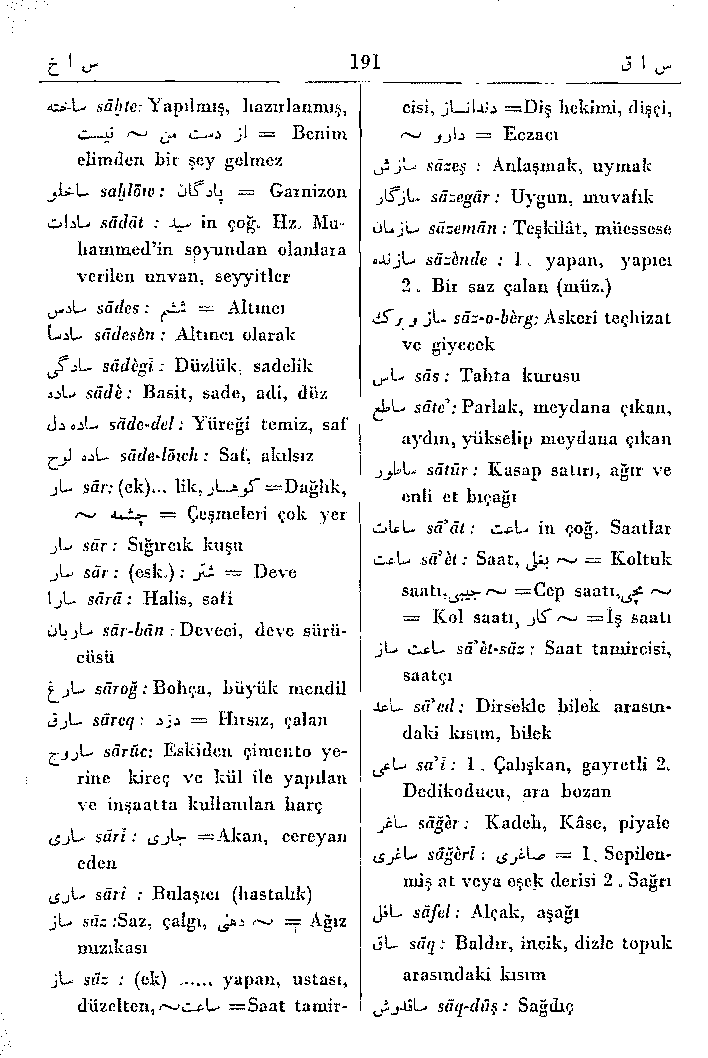 س ا خ
191
س ا ق
ساخته sāhte: Yapılmış, hazırlanmış,
از دست من ~ نیست = Benim
elimden bir şey gelmez
ساخلو sahlōw: پادگان = Garnizon
سادات sādāt : سید in çoğ. Hz. Mu-
hammed'in soyundan olanlara
verilen unvan, seyyitler
سادس sādes : ششم = Altıncı
سادسا sādesèn : Altıncı olarak
سادگی sādègī : Düzlük, sadelik
ساده sādè : Basit, sade, adi, düz
ساده دل sāde-del : Yüreği temiz, saf
ساده لوح sāde-lōıch : Saf, akılsız
سار sār: (ek)... lik, کوهسار =Dağlık,
~ چشمه = Çeşmeleri çok yer
سار sār : Sığırcık kuşu
سار sār : (esk.) : شتر = Deve
سارا sārā : Halis, safi
ساربان sār-bān : Deveci, deve sürü-
cüsü
سارغ sāroğ : Bohça, büyük mendil
سارق sāreq : دزد = Hırsız, çalan
ساروج sārūc: Eskiden çimento ye-
rine kireç ve kül ile yapılan
ve inşaatta kullanılan harç
ساری sārī : جاری =Akan, cereyan
eden
ساری sāri : Bulaşıcı (hastalık)
ساز sāz :Saz, çalgı, دهنی ~ = Ağız
mızıkası
ساز sāz : (ek) ...... yapan, ustası,
düzelten, ساعت~ =Saat tamir-
cisi, دندانساز =Diş hekimi, dişçi,
~ دارو = Eczacı
سازش sāzeş : Anlaşmak, uymak
سازگار sāzegār : Uygun, muvafık
سازمان sāzemān : Teşkilât, müessese
سازنده sāzènde : 1. yapan, yapıcı
2. Bir saz çalan (müz.)
ساز و برگ sāz-o-bèrg: Askeri teçhizat
ve giyecek
ساس sās : Tahta kurusu
ساطع sāte': Parlak, meydana çıkan,
aydın, yükselip meydana çıkan
ساطور sātūr : Kasap satırı, ağır ve
enli et bıçağı
ساعات sā'āt : ساعت in çoğ. Saatlar
ساعت sā'èt : Saat, بغل ~ = Koltuk
saatı, جیبی ~ =Cep saatı, مچی ~
= Kol saatı, کار ~ =İş saatı
ساعت ساز sā'èt-sāz : Saat tamircisi,
saatçı
ساعد sā'ed : Dirsekle bilek arasın-
daki kısım, bilek
ساعی sa'ī : 1. Çalışkan, gayretli 2.
Dedikoducu, ara bozan
ساغر sāğèr : Kadeh, Kâse, piyale
ساغری sāğèrī : صاغری = 1. Sepilen-
miş at veya eşek derisi 2. Sağrı
سافل sāfel : Alçak, aşağı
ساق sāq : Baldır, incik, dizle topuk
arasındaki kısım
ساقدوش sāq-dūş : Sağdıç